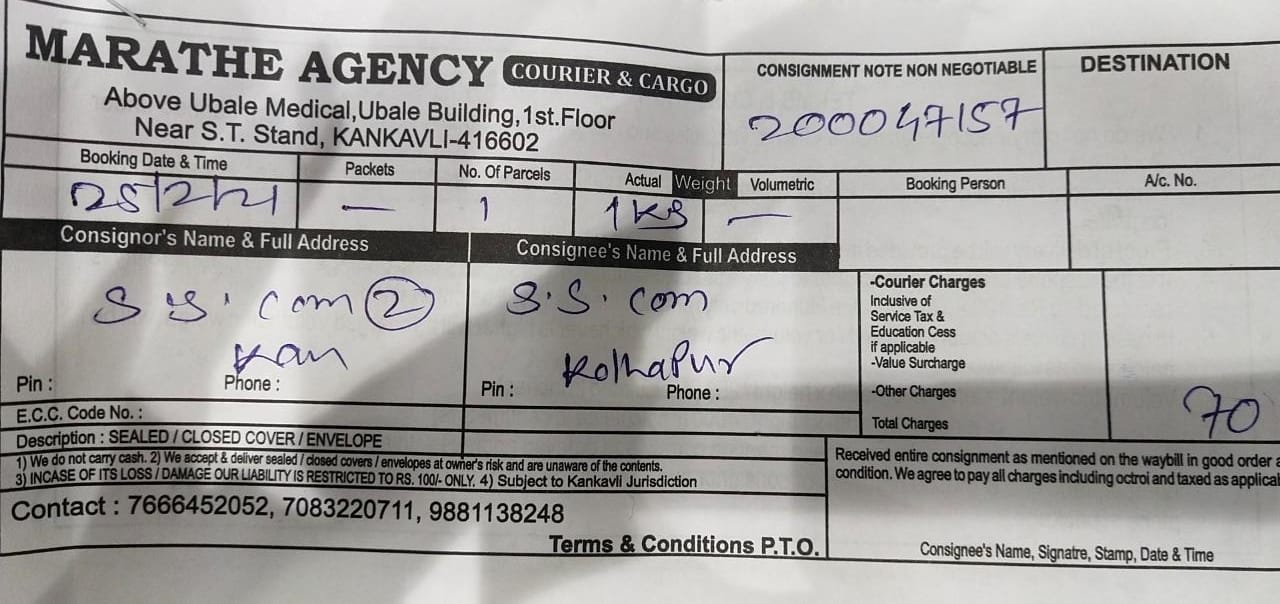 MARATHE AGENCY COURIER & CARGO
Above Ubale Medical,Ubale Building,1st.Floor
Near S.T. Stand, KANKAVLI-416602
CONSIGNMENT NOTE NON NEGOTIABLE
200047157
DESTINATION
Booking Date & Time
Packets
No. Of Parcels
Actual Weight Volumetric
Booking Person
A/c. No.
—
1
1 KG
—
Consignor's Name & Full Address
Consignee's Name & Full Address
S S. com 2
Kan
Pin :
Phone :
S.S. com
Kolhapur
Pin :
Phone :
-Courier Charges
Inclusive of
Service Tax &
Education Cess
if applicable
-Value Surcharge
-Other Charges
Total Charges
70
E.C.C. Code No. :
Description : SEALED / CLOSED COVER / ENVELOPE
1) We do not carry cash. 2) We accept & deliver sealed / closed covers / envelopes at owner's risk and are unaware of the contents.
3) INCASE OF ITS LOSS / DAMAGE OUR LIABILITY IS RESTRICTED TO RS. 100/- ONLY. 4) Subject to Kankavli Jurisdiction
Contact : 7666452052, 7083220711, 9881138248
Terms & Conditions P.T.O.
Received entire consignment as mentioned on the waybill in good order
condition. We agree to pay all charges including octrol and taxed as
Consignee's Name, Signatre, Stamp, Date & Time